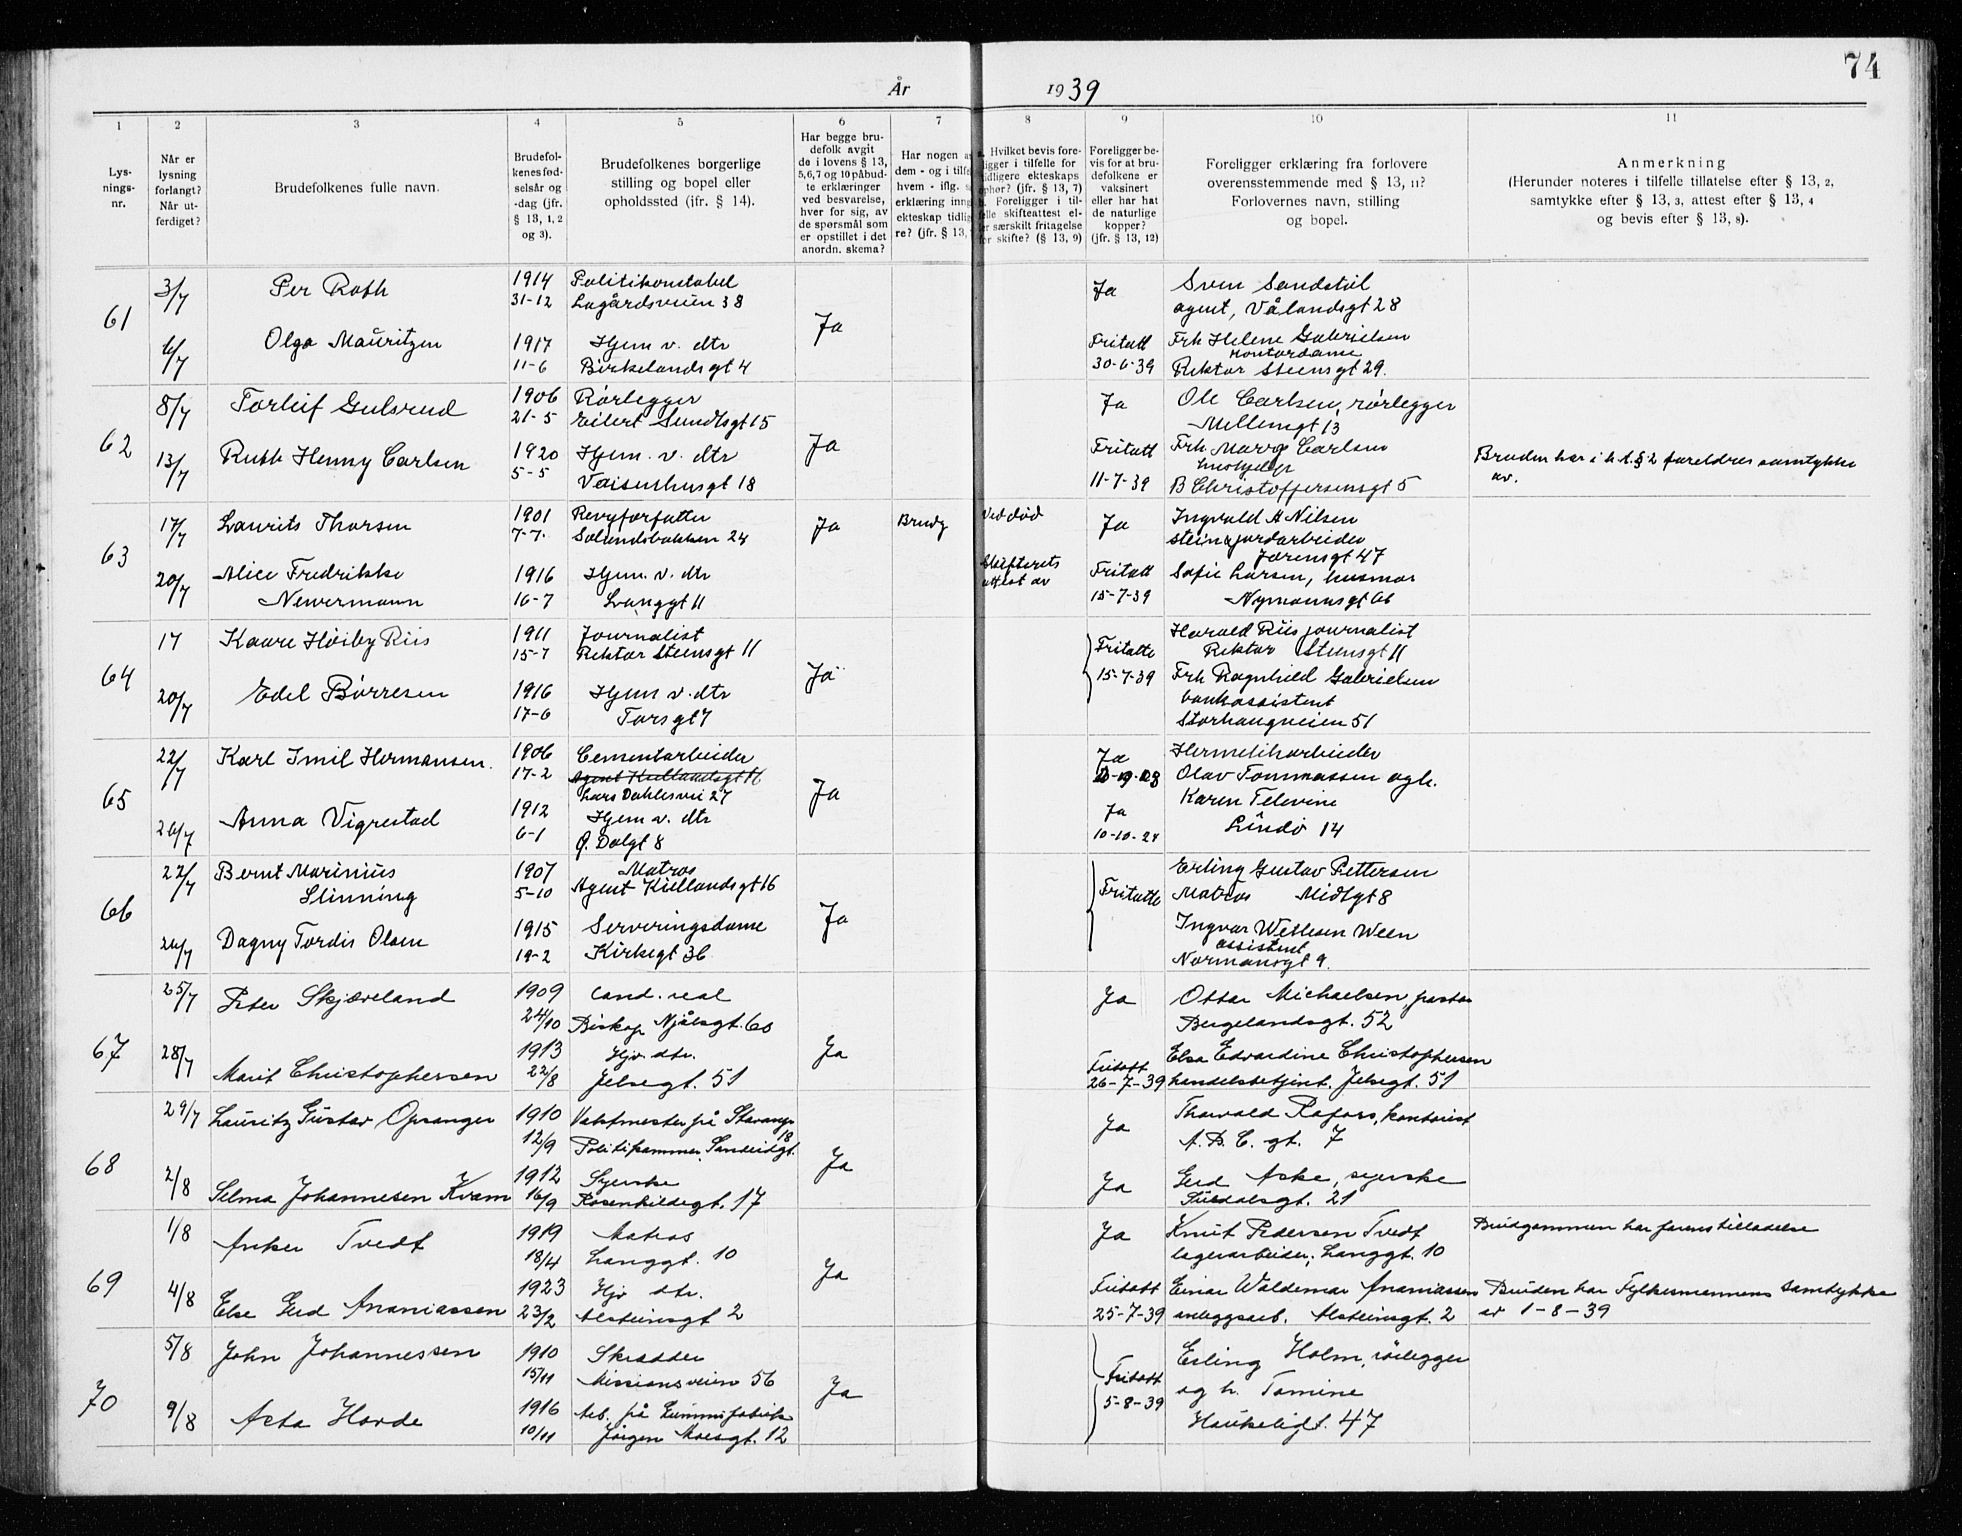 74
År 1939
1 2 3 4 5 6 7 8 9 10 11
Lys-
nings-
nr.
Når er
lysning
forlangt?
Når ut-
ferdiget?
Brudefolkenes fulle navn.
Brudefol-
kenes fød-
selsår og
-dag (jfr.
§ 13, 1, 2
og 3).
Brudefolkenes borgerlige
stilling og bopel eller
opholdssted (jfr. § 14).
Har begge bru-
defolk avgit
de i lovens § 13,
5,6,7 og 10 påbud-
te erklæringer
ved besvarelse,
hver for sig, av
de spørsmål som
er opstillet i det
anordn. skema?
Har nogen
dem - og i
hvem - iflg.
erklæring
ekteskap
re? (jfr. § 13,
Hvilket bevis fore-
ligger i tilfelle for
tidligere ekteskaps
ophør? (jfr. § 13, 7)
Foreligger i til-
felle skifteattest el-
ler særskilt fritagelse
for skifte? (§ 13, 9)
Foreligger be-
vis for at bru-
defolkene er
vaksinert
eller har hat
de naturlige
kopper?
(jfr. § 13, 12)
Foreligger erklæring fra forlovere
overensstemmende med § 13, 11?
Forlovernes navn, stilling
og bopel.
Anmerkning
(Herunder noteres i tilfelle tillatelse efter § 13, 2,
samtykke efter § 13, 3, attest efter § 13, 4
og bevis efter § 13, 8).
61
3/7 Per Roth 1914 Politikonstabel Ja Sven Sandstöl
31-12 Lagårdsveien 38 agent, Vålandsgt 28
Ja
6/7 Olga Mauritzen 1917 Hjem v. dtr Fritatt Frk Helene Gabrielsen
kontordame
11-6 Birkelandsgt 4 30-6-39 Rektor Steensgt 29.
62
8/7 Torleif Gulsrud 1906 Rørlegger Ja Ole Carlsen, rørlegger
21-5 Eilert Sundtsgt 15 Møllensgt 13
Ja
13/7 Ruth Henny Carlsen 1920 Hjem. v. dtr Fritatt Frk. Carlsen
5-5 Vaisenhusgt 18 11-7-39 B Christoffersensgt 5
Bruden har i h. t. § 2 foreldres samtykke
av.
63
17/7 Laurits Thorsen 1901 Revyforfatter Ja Brudg Ved død Ja Ingvald A Nilsen
7-7. Solundsbakken 24 stein & jordarbeider
Jørensgt 47
20/7 Alice Fredrikke 1916 Hjem. v. dtr Skifterets Fritatt Sofie Larsen, husmor
Newermann 16-7 Langgt 11 attest av 15-7-39 Nymannsgt 66
64
17 Kaare Høiby Riis 1911 Journalist Fritatte Harald Riis journalist
15-7 Rektor Steensgt 11 15-7-39 Rektor Steensgt 11
Ja
20/7 Edel Børresen 1916 Hjem v. dtr Frk Ragnhild Gabrielsen
17-6 Torsgt 7 bankassistent
Storhaugveien 51
65
22/7 Karl Emil Hermansen. 1906 Cementarbeider Ja Hermetikarbeider
17-2 Agent Kiellandsgt 16 Olav Tommassen ogh.
Lars Dahlesvei 27
Ja
26/7 Anna Vigrestad 1912 Hjem v. dtr Ja Karen Televine
6-1 Ø. Dalgt 8 10-10-24 Lindö 14
66
22/7 Bernt Marinius 1907 Matros Fritatte Erling Gustav Pettersen
Slinning 5-10 Agent Kiellandsgt 16 Matros Midtgt 8
Ja
26/7 Dagny Tordis Olsen 1915 Serveringsdame IngvarWeen
assistent
19-2 Kirkegt 36 Normansgt 9.
67
25/7 Peter Skjæveland 1909 Cand. real Ja Ottar Michaelsen, pastor
24/10 Biskop Njålsgt. 60 Bergelandsgt. 52
Ja
28/7 Marit Christophersen 1913 Hjv. dtr. Fritatt Elsa Edvardine Christophersen
22/8 Jelsegt. 51 26-7-39 handelsbetjent. Jelsegt. 51
68
29/7 Lauritz Gustav Opsanger 1910 Vaktmester på Stavanger Ja Thorvald Rafoss, kontorist
12/9 Politikammer, Sandeidgt. 18 A. B. C. gt. 7
Ja
2/8 Selma Johannesen Kvam 1912 Syerske Ja Gerd Aske, syerske
16/9 Rosenkildegt. 17 Suldalsgt. 21
69
1/8 Anker Tvedt 1919 Matros Ja Knut Pedersen Tvedt
18/4 Langgt. 10 lagerarbeider, Langgt. 10
Brudgommen har farens tilladelse
Ja
4/8 Else Gerd Ananiassen 1923 Hjv dtr. Fritatt Einar Waldemar Ananiassen
23/2 Alsteinsgt 2 25-7-39 anleggsarb. Alsteinsgt. 2
Bruden har Fylkesmannens samtykke
av 1-8-39
70
5/8 John Johannessen 1910 Skredder Fritatt Erling Holm, rørlegger
15/11 Missionsveien 56 5-8-39 og h. Tomine
Ja
9/8 Asta Horde 1916 Arb. på Gummifabrik Haukeligt. 47
10/11 Jörgen Moesgt. 12